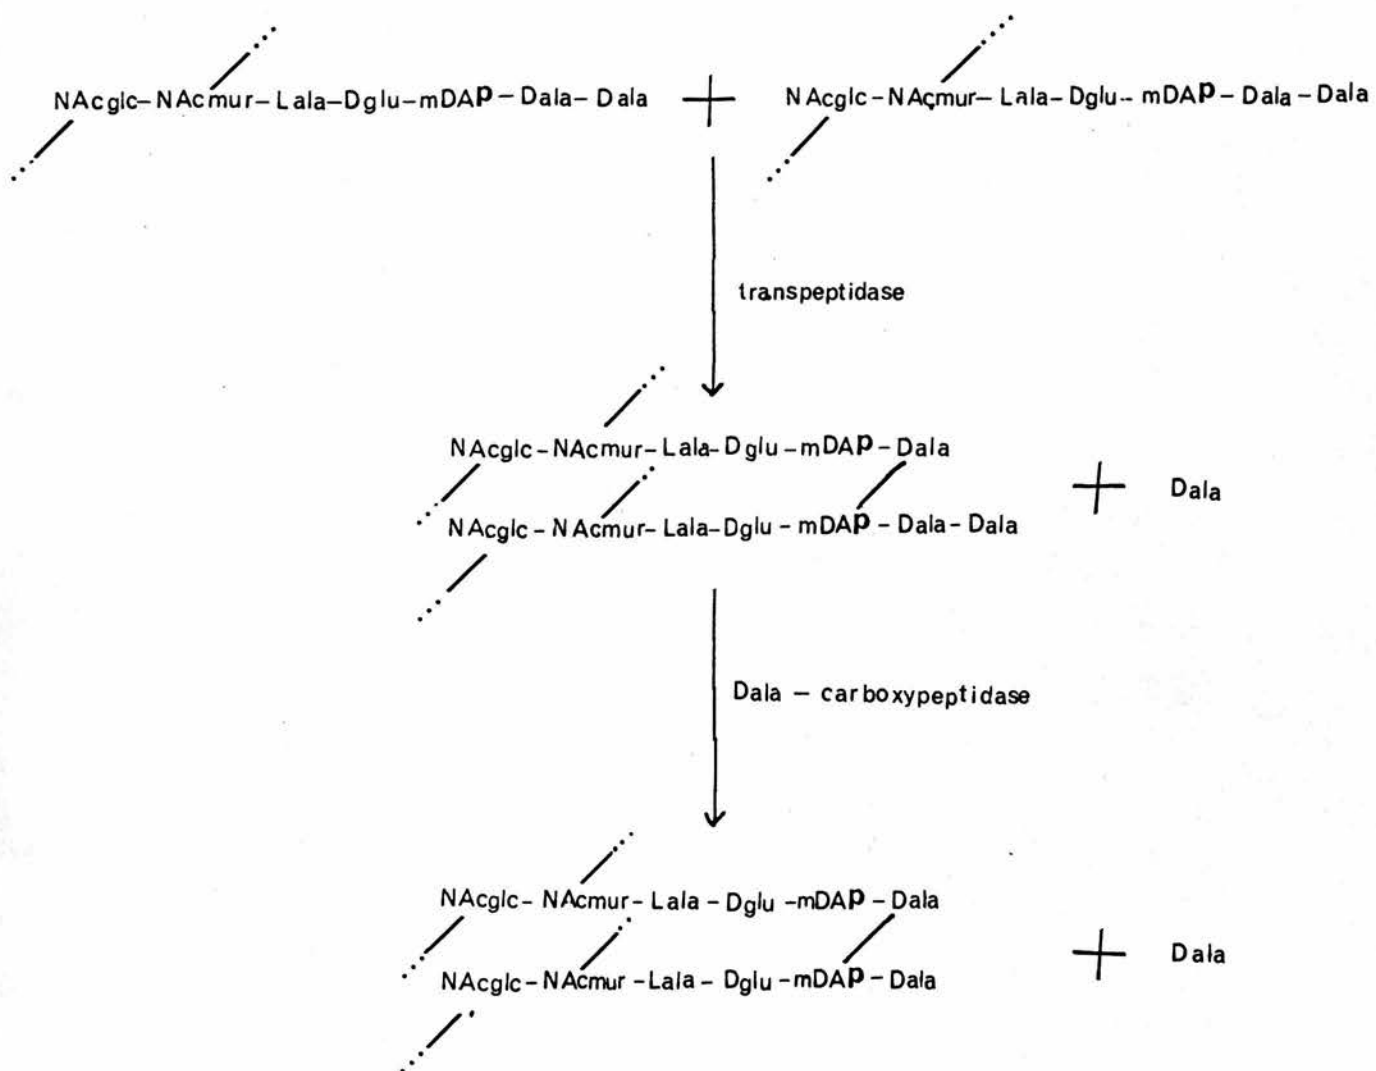 NAcglc-NAcmur-Lala-Dglu-mDAP-Dala-Dala + NAcglc-NAçmur-Lala-Dglu-mDAP-Dala-Dala
transpeptidase
NAcglc-NAcmur-Lala-Dglu-mDAP-Dala
+ Dala
NAcglc-NAcmur-Lala-Dglu-mDAP-Dala-Dala
Dala - carboxypeptidase
NAcglc-NAcmur-Lala-Dglu-mDAP-Dala
+ Dala
NAcglc-NAcmur-Lala-Dglu-mDAP-Dala